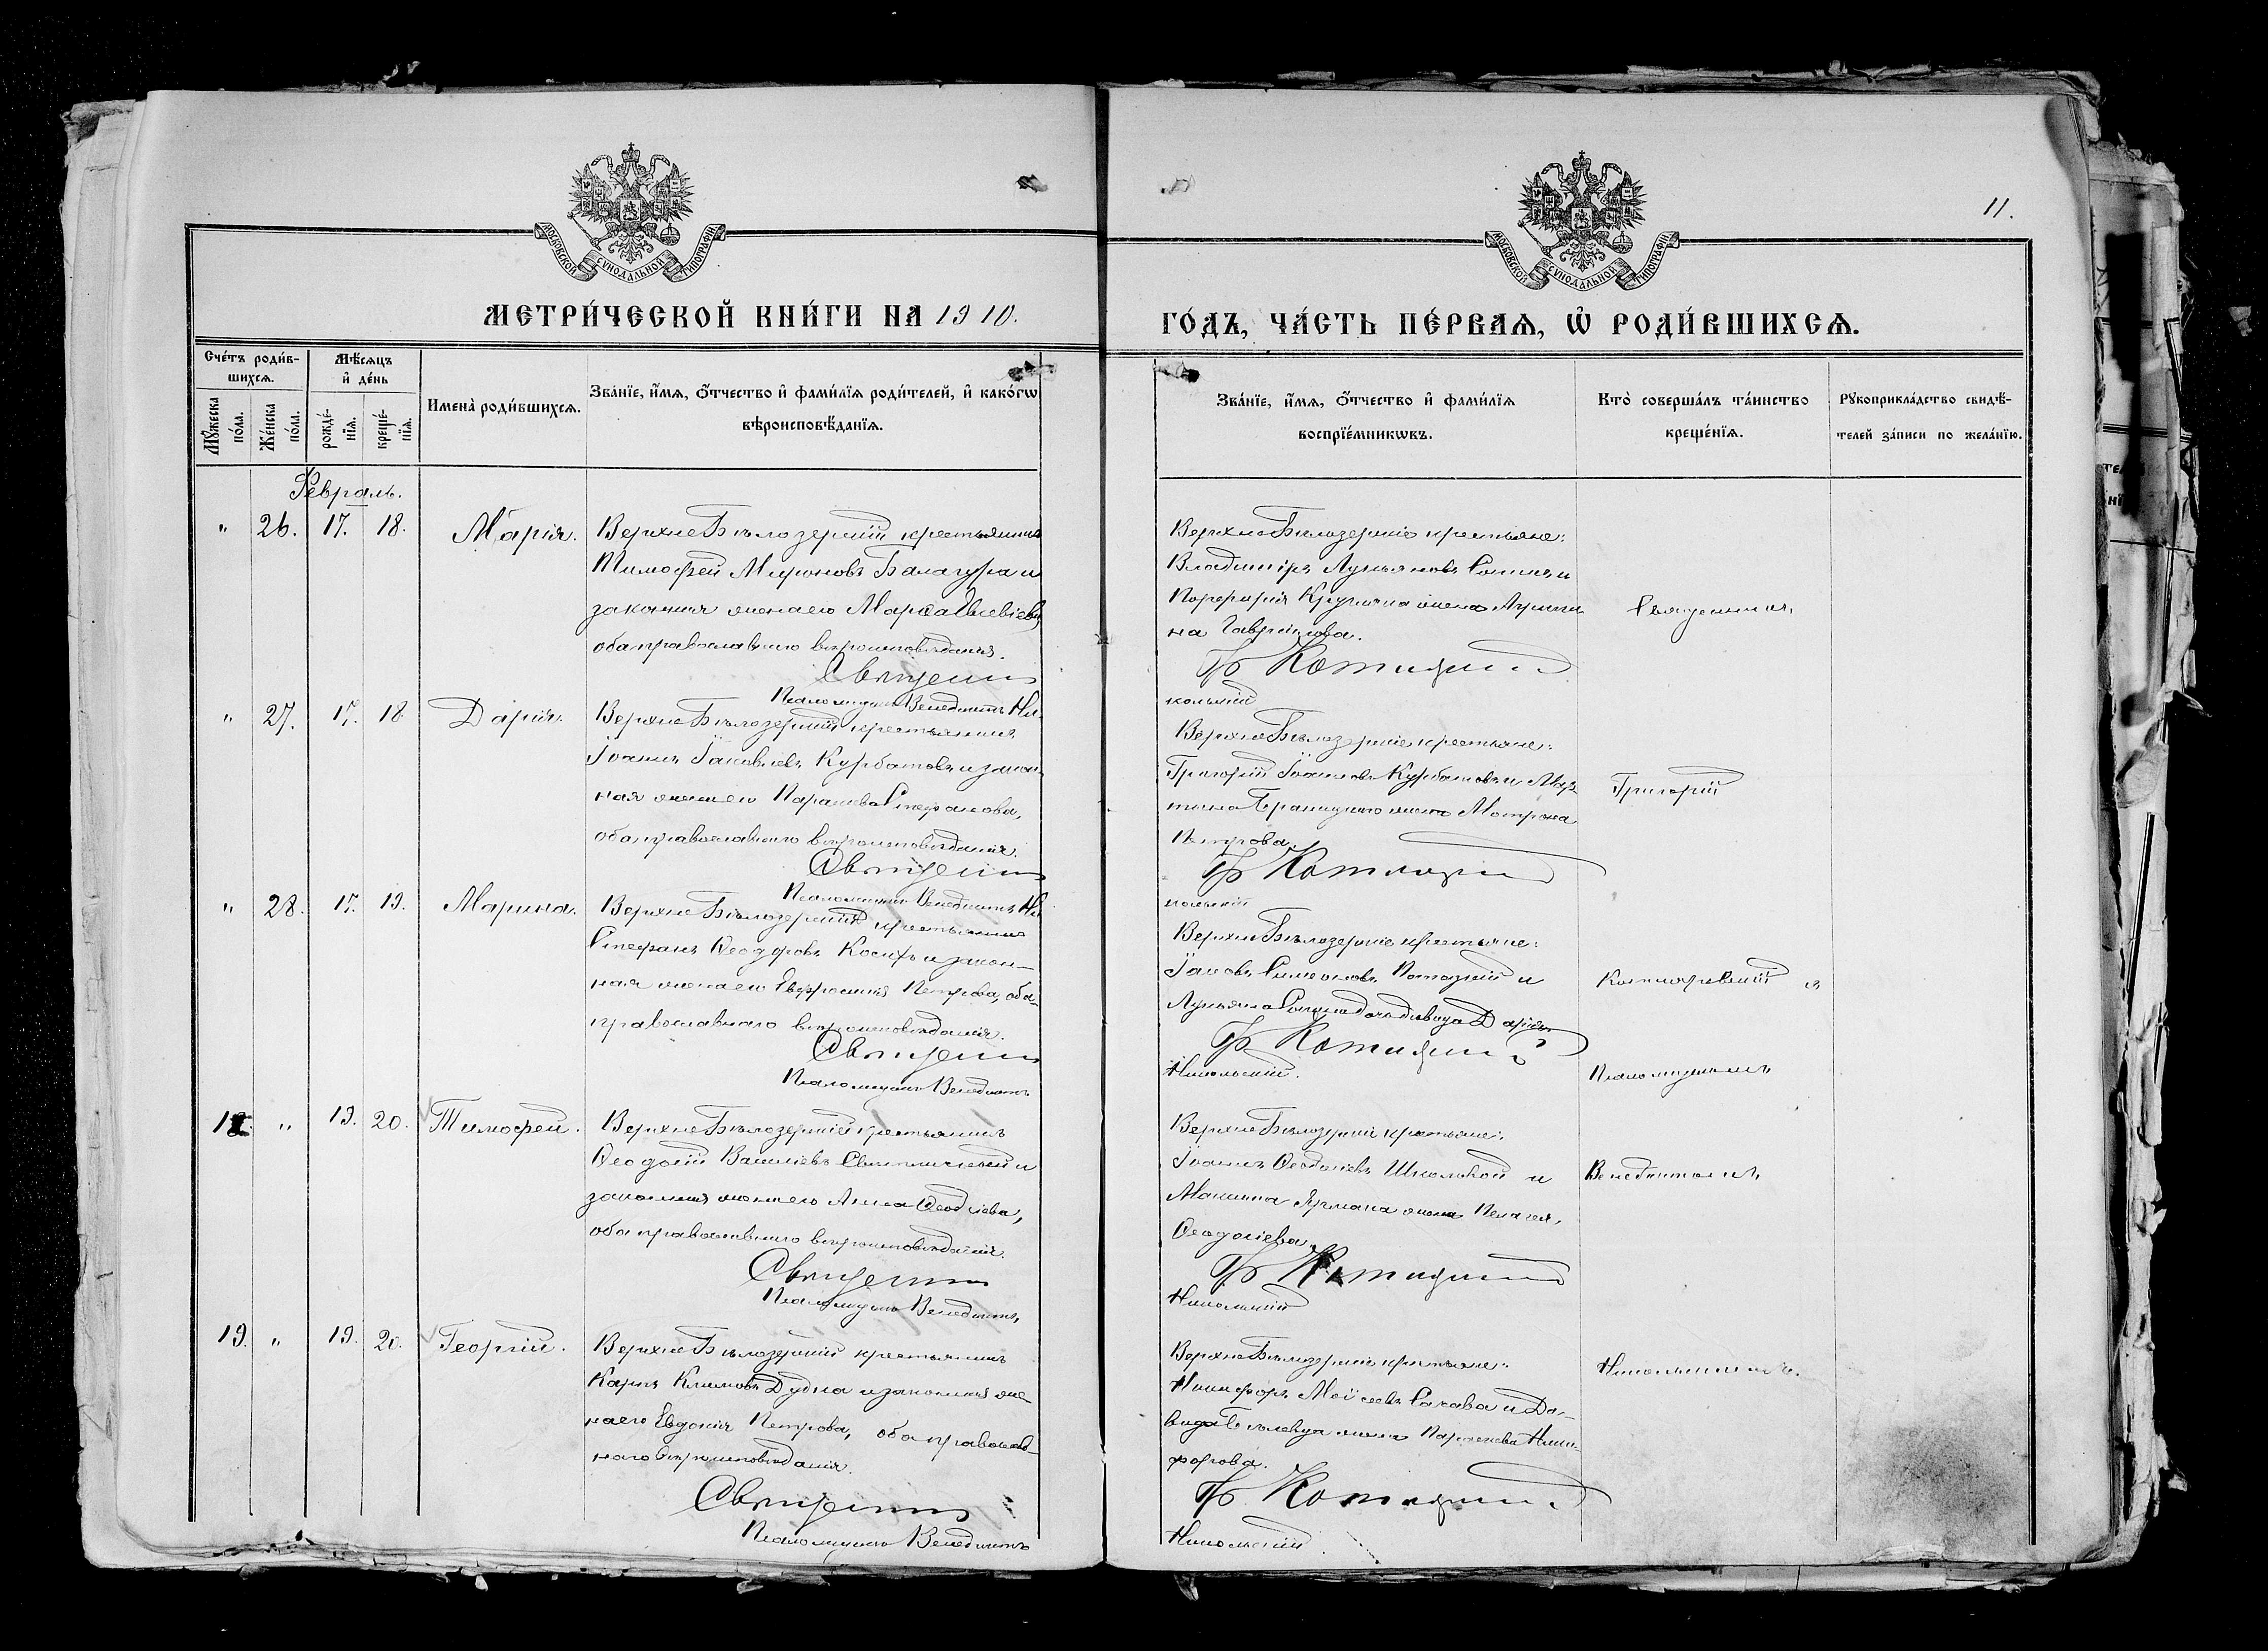 11.
МОСКОВСКОЙ СѴНОДАЛЬНОЙ ТИПОГРАФІИ
МОСКОВСКОЙ СѴНОДАЛЬНОЙ ТИПОГРАФІИ
МЕТРИ́ЧЕСКОЙ КНИ́ГИ НА 1910.
ГО́ДЪ, ЧА́СТЬ ПЕ́РВАѦ, Ѡ РОДИ́ВШИХСѦ.
Сче́тъ роди́в-
шихсѧ.
Мꙋжеска по́ла.
Же́нска по́ла.
Мѣ́сѧцъ и҆ де́нь
рожде́-
нїѧ.
креще́-
нїѧ.
Имена̀ роди́вшихсѧ.
Зва́нїе, и҆́мѧ, ѻ҆́тчество и҆ фами́лїѧ роди́телей, и҆ како́гѡ
вѣроисповѣ́данїѧ.
Зва́нїе, и҆́мѧ, ѻ҆́тчество и҆ фами́лїѧ
воспрїе́мникѡвъ.
Кто̀ соверша́лъ та́инство
креще́нїѧ.
Рꙋкоприкла́дство свидѣ́-
телей за́писи по жела́нїю.
Февраль.
" 26. 17. 18. Марія.
Верхне Бѣлозерскій крестьянинъ
Тимофей Мироновъ Балагура и
законная жена его Марѳа
оба православнаго вѣроисповѣданія.
Священни
Псаломщикъ Венедиктъ Ни-
Верхне Бѣлозерскіе крестьяне:
Владиміръ Лукьяновъ и
жена
на Гаврилова.
къ
кольскій
Священникъ
" 27. 17. 18 Дарія.
Верхне Бѣлозерскій крестьянинъ
Іоаннъ Іаковлевъ Курбатовъ и закон-
ная жена его Параскева Стефанова,
оба православнаго вѣроисповѣданія.
Священни
Псаломщикъ Венедиктъ Ни-
Верхне Бѣлозерскіе крестьяне:
Григорій Іоанновъ Курбатовъ и
жена Матрона
Петрова.
къ
кольскій
Григорій
" 28. 17. 19. Марина.
Верхне Бѣлозерскій крестьянинъ
Стефанъ Ѳеодоровъ и закон-
ная жена его Евфросинія Петрова, оба
православнаго вѣроисповѣданія.
Священни
Псаломщикъ Венедиктъ
Верхне Бѣлозерскіе крестьяне:
Іаковъ Симеоновъ Потоцкій и
Лукьяна дочь девица Дарія.
къ
Никольскій.
съ
Псаломщикомъ
18. " 19. 20. Тимофей.
Верхне Бѣлозерскій крестьянинъ
Ѳеодосій Василіевъ и
законная жена его Анна
оба православнаго вѣроисповѣданія.
Священни
Псаломщикъ Венедиктъ
Верхне Бѣлозерскіе крестьяне:
Іоаннъ Ѳеодосіевъ Школьной и
жена Пелагея,
Ѳеодосіева.
къ
Никольскій
Венедиктомъ
19. " 19. 20. Георгій.
Верхне Бѣлозерскій крестьянинъ
Карпъ Климовъ Дудка и законная же-
на его Евдокія Петрова, оба православ-
наго вѣроисповѣданія.
Священни
Псаломщикъ Венедиктъ
Верхне Бѣлозерскіе крестьяне:
Никифоръ Моѵсеевъ и Да-
вида жена Параскева Ники-
форова.
къ
Никольскій
Никольскимъ.